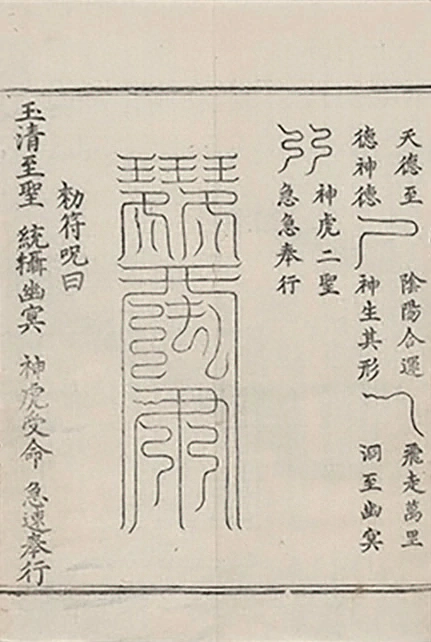 天德至 陰陽合運 飛走萬里
德神德 神生其形 洞至幽冥
神虎二聖
急急奉行
勑符呪曰
玉清至聖 統攝幽冥 神虎受命 急速奉行